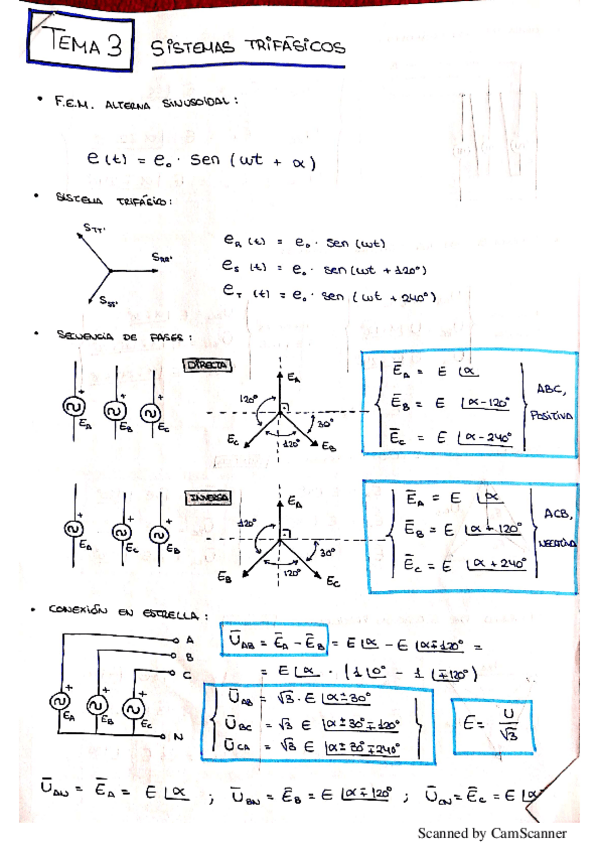 TEMA 3 SISTEMAS TRIFÁSICOS
• F.E.M. ALTERNA SINUSOIDAL:
e(t) = e₀ · sen (wt + α)
• SISTEMA TRIFÁSICO:
S_TT'
S_RR'
S_SS'
e_R (t) = e₀ · sen (wt)
e_S (t) = e₀ · sen (wt + 120°)
e_T (t) = e₀ · sen (wt + 240°)
• SECUENCIA DE FASES:
DIRECTA
+ + +
E_A E_B E_C
E_A
120°
30°
E_C 120° E_B
Ē_A = E ∠α
Ē_B = E ∠α-120°
Ē_C = E ∠α-240°
ABC,
POSITIVA
INVERSA
+ + +
E_A E_C E_B
E_A
120°
30°
E_B 120° E_C
Ē_A = E ∠α
Ē_B = E ∠α+120°
Ē_C = E ∠α+240°
ACB,
NEGATIVA
• CONEXIÓN EN ESTRELLA:
A
B
C
+ + +
E_A E_B E_C
N
Ū_AB = Ē_A - Ē_B = E ∠α - E ∠α∓120° =
= E ∠α · (1 ∠0° - 1 ∠∓120°)
Ū_AB = √3 · E ∠α±30°
Ū_BC = √3 E ∠α±30°∓120°
Ū_CA = √3 E ∠α±30°∓240°
E = U/√3
Ū_AN = Ē_A = E ∠α ; Ū_BN = Ē_B = E ∠α∓120° ; Ū_CN = Ē_C = E ∠α
Scanned by CamScanner